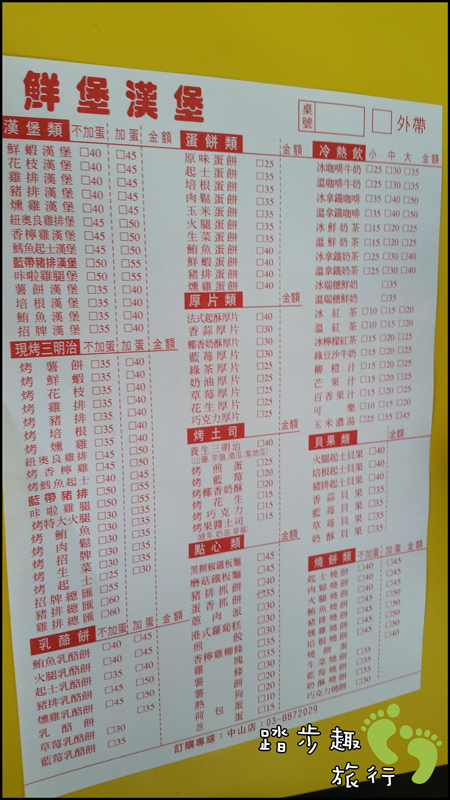 鮮堡漢堡
桌號 □外帶
漢堡類 不加蛋 加蛋 金額
鮮蝦漢堡 □40 □45
花枝漢堡 □40 □45
雞排漢堡 □40 □45
豬排漢堡 □40 □45
燻雞漢堡 □40 □45
紐奧良雞排堡 □45 □50
香檸雞漢堡 □45 □50
鱈魚起士漢堡 □45 □50
藍帶豬排漢堡 □50 □55
咔啦雞腿堡 □50 □55
薯餅漢堡 □35 □40
培根漢堡 □35 □40
鮪魚漢堡 □35 □40
招牌漢堡 □35 □40
現烤三明治 不加蛋 加蛋 金額
烤薯餅 □35
烤鮮蝦 □40
烤花枝
烤雞排
烤豬排
烤培根
烤燻雞
紐奧良雞排
烤香檸雞
烤鱈魚起士
藍帶豬排
咔啦雞腿
烤特大火腿
烤鮪魚
烤肉鬆
烤招牌
烤生菜
烤起士
招牌總匯 □55
豬排總匯 □60
雞排總匯 □60
乳酪餅 不加蛋 加蛋 金額
鮪魚乳酪餅 □40 □45
火腿乳酪餅 □35 □40
起士乳酪餅
豬排乳酪餅
燻雞乳酪餅
乳酪餅 □30
草莓乳酪餅 □35
藍莓乳酪餅 □35
蛋餅類 金額
原味蛋餅 □25
起士蛋餅 □30
培根蛋餅 □30
肉鬆蛋餅 □30
玉米蛋餅 □30
火腿蛋餅 □30
生菜蛋餅 □30
鮪魚蛋餅
鮮蝦蛋餅
豬排蛋餅
燻雞蛋餅
厚片類 金額
法式起酥厚片 □40
香蒜厚片 □30
椰香奶酥厚片 □30
藍莓厚片
綠茶厚片 □25
奶油厚片 □25
草莓厚片 □25
花生厚片 □25
巧克力厚片 □25
烤土司 金額
養生三明治 □40
(山藥.芋頭.南瓜.紫地瓜)
烤煎蛋 □25
烤藍莓 □20
烤椰香奶酥 □20
烤花生 □15
烤巧克力 □15
烤果醬土司 □15
(綠茶.奶油.草莓)
點心類 金額
黑糊椒鐵板麵 □45
磨菇鐵板麵 □45
豬排抓餅 □45
蛋香抓餅 □35
蔥肉派
港式蘿蔔糕
煎餃
香檸雞柳條
雞塊 □30
薯條 □20
薯餅
熱狗 □10
荷包蛋 □10
蔥蛋
冷熱飲 小 中 大 金額
冰咖啡牛奶 □25 □30 □35
溫咖啡牛奶 □25 □30 □35
冰拿鐵咖啡 □35 □40 □50
溫拿鐵咖啡 □35 □40 □50
冰鮮奶茶 □15 □20 □25
溫鮮奶茶 □15 □20 □25
冰拿鐵奶茶 □25 □30 □40
溫拿鐵奶茶 □25 □30 □40
冰瑞穗鮮奶 □35
溫瑞穗鮮奶 □35
冰紅茶 □10 □15 □20
溫紅茶
冰檸檬紅茶
綠豆沙牛奶
柳橙汁
芒果汁
百香果汁
可樂
玉米濃湯 □25 □35 □45
貝果類 金額
火腿起士貝果 □40
培根起士貝果 □40
豬排起士貝果
香蒜貝果
藍莓貝果 □35
草莓貝果 □35
奶酥貝果 □35
燒餅類 不加蛋 加蛋 金額
起士燒餅
肉鬆燒餅
火腿燒餅
鮪魚燒餅
豬排燒餅
燻雞燒餅
培根燒餅
燒餅蛋
生菜燒餅
藍莓燒餅
奶酥燒餅 □30
巧克力燒餅 □30
訂購專線：中山店：03-8872029
踏步趣
旅行